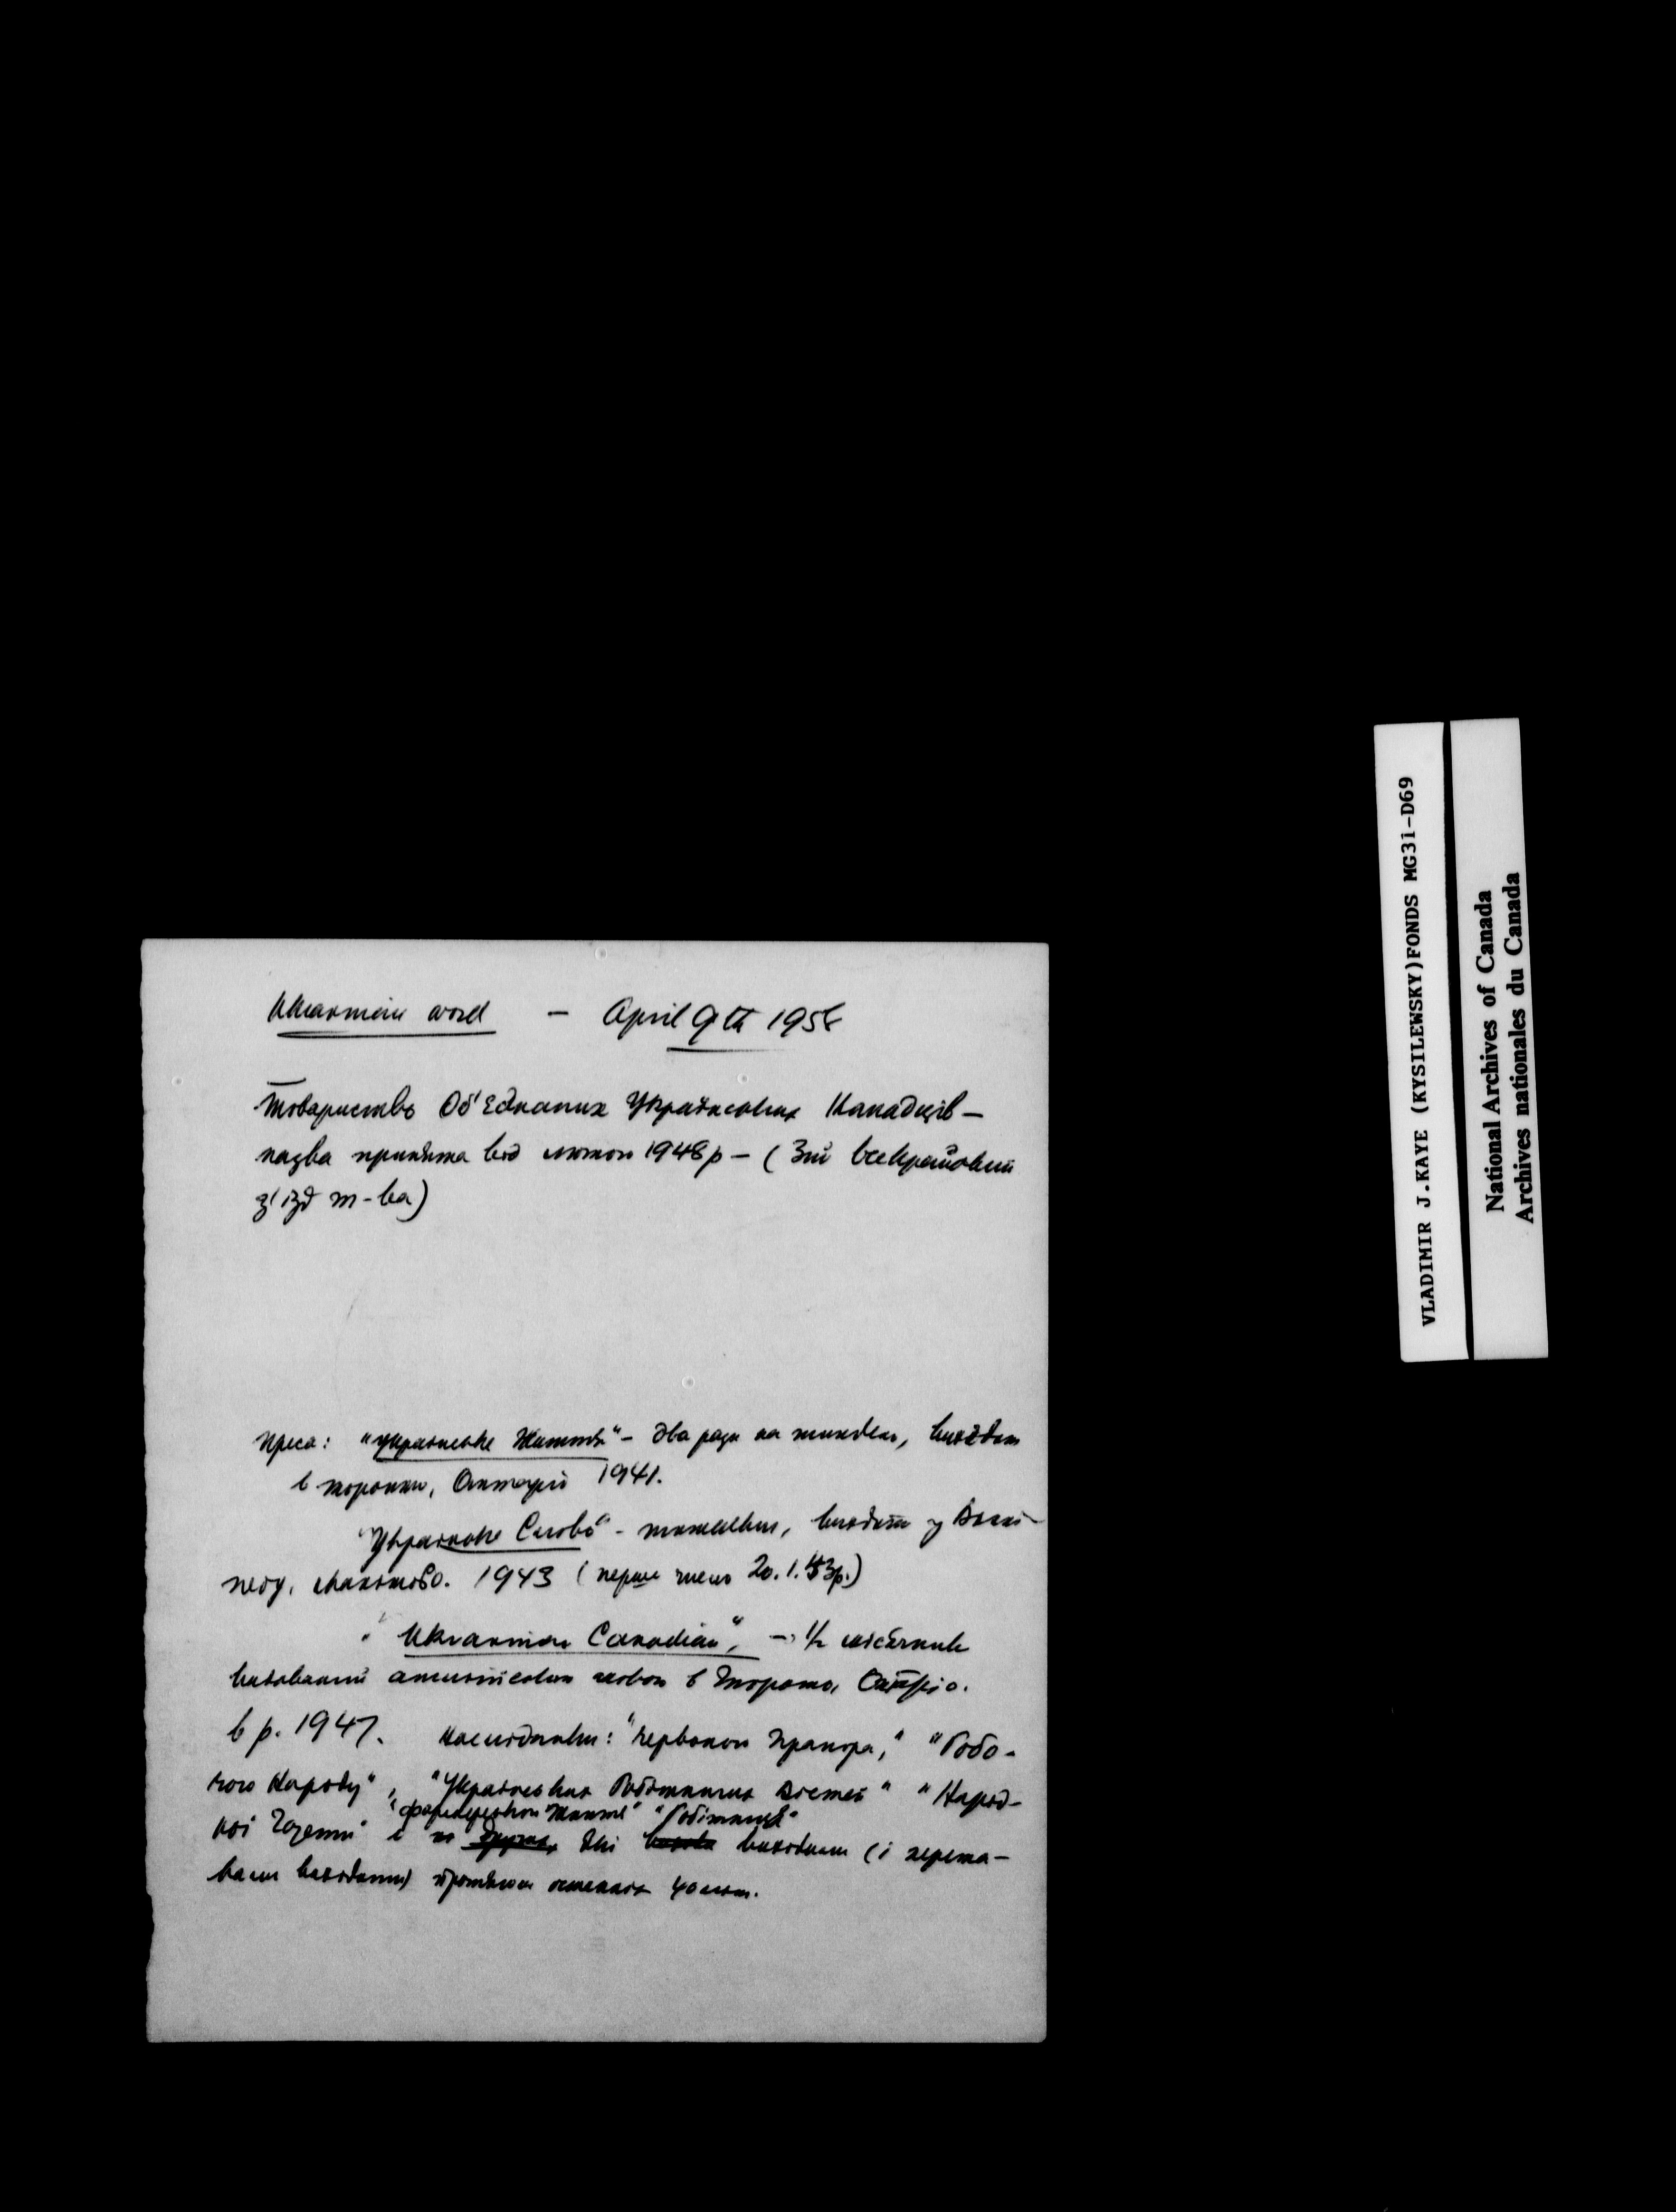 Ukrainian word - April 9th 1958
Товариство Об'єднаних Українських Канадців -
назва принята від лютого 1948 р - (3ий всекрайовий
з'їзд т-ва)
Преса: "Українське Життя" - два рази на тиждень, виходить
в Торонто, Онтаріо 1941.
"Українське Слово" - тижневик, виходить у Вінні-
пегу, Манітоба. 1943 (перше число 20.1.43р.)
"Ukrainian Canadian", - 1/2 місячник
видаваний англійською мовою в Торонто, Онтаріо.
в р. 1947. Наслідники: "Червоного Прапора," "Робо-
чого Народу", "Українських Робітничих Вістей" "Народ-
"Фармерського Життя" "Робітниці"
ної Газети" і які виходили (і переста-
вали виходити) протягом останніх 40 літ.
VLADIMIR J.KAYE (KYSILEWSKY)FONDS MG31-D69
National Archives of Canada
Archives nationales du Canada